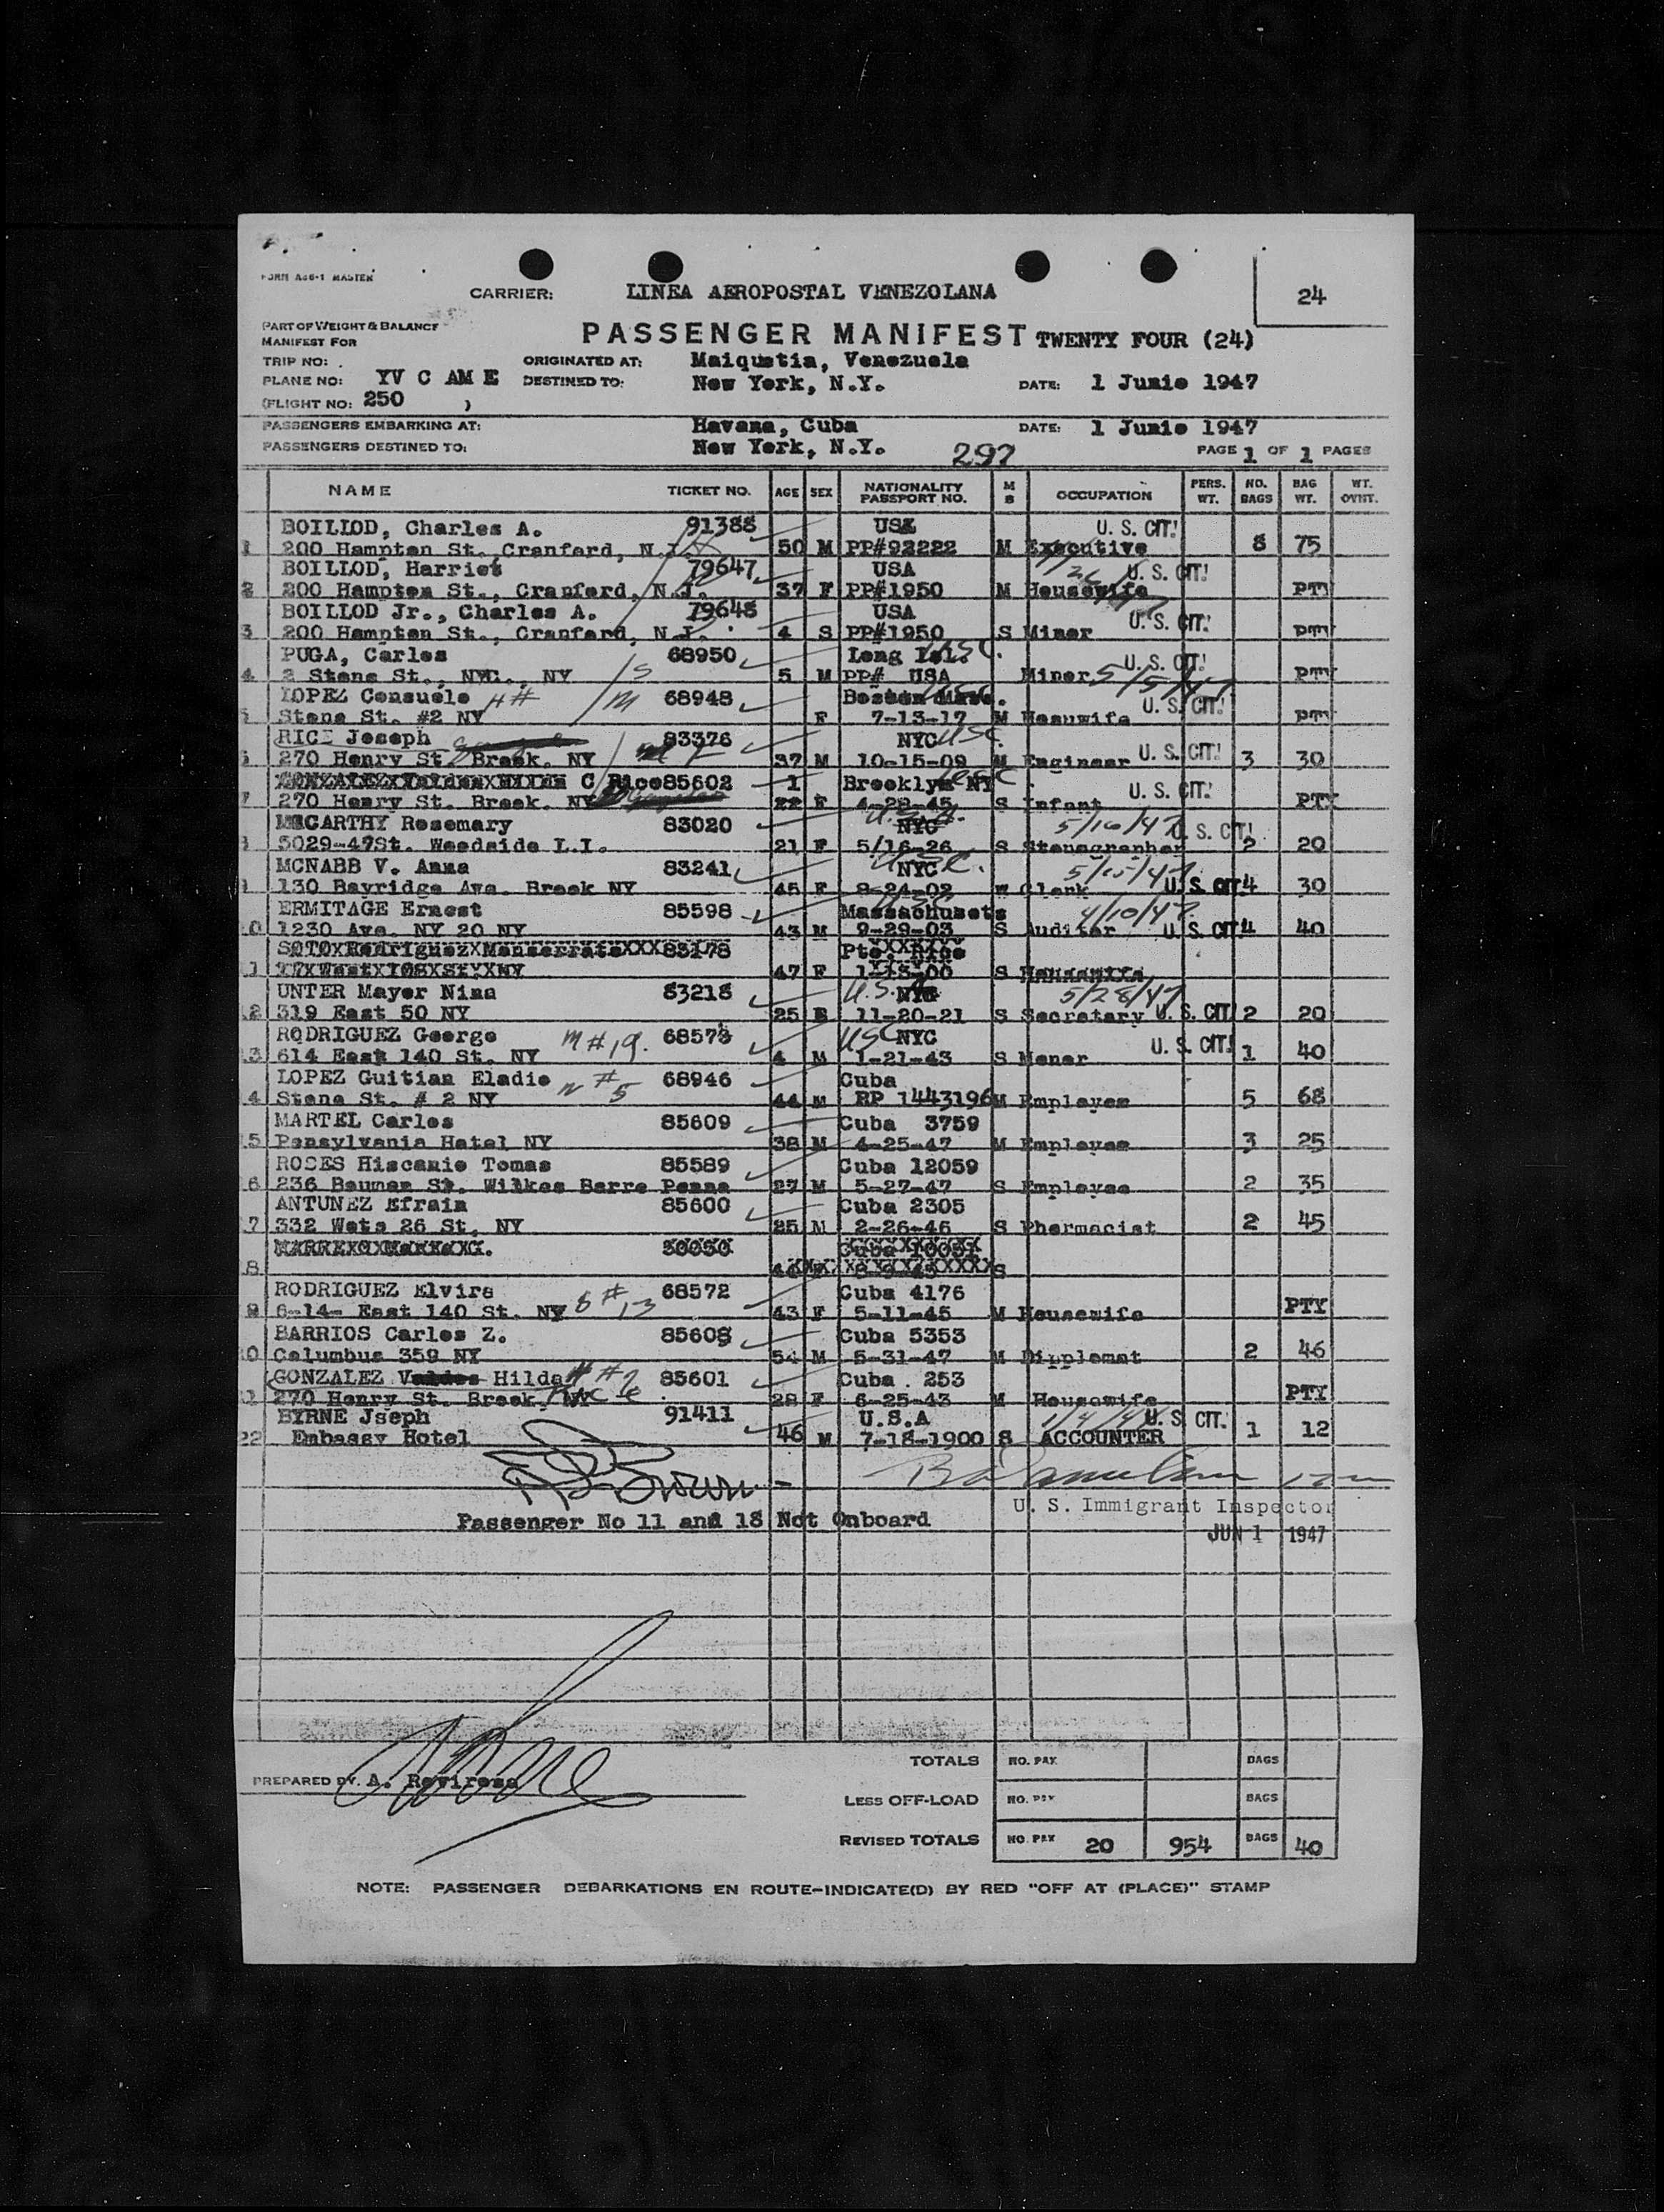 FORM A86-1 MASTER
CARRIER: LINEA AEROPOSTAL VENEZOLANA
24
PART OF WEIGHT & BALANCE
MANIFEST FOR
PASSENGER MANIFEST TWENTY FOUR (24)
TRIP NO: ORIGINATED AT: Maiquetia, Venezuela
PLANE NO: YV C AM E DESTINED TO: New York, N.Y. DATE: 1 Junio 1947
(FLIGHT NO: 250 )
PASSENGERS EMBARKING AT: Havana, Cuba DATE: 1 Junio 1947
PASSENGERS DESTINED TO: New York, N.Y. 297 PAGE 1 OF 1 PAGES
NAME TICKET NO. AGE SEX NATIONALITY PASSPORT NO. M S OCCUPATION PERS. WT. NO. BAGS BAG WT. WT. OVHT.
BOILLOD, Charles A. 91388 USA U. S. CIT.
1 200 Hampton St., Cranford, N.J. 50 M PP#92222 M Executive 8 75
BOILLOD, Harriet 79647 USA U. S. CIT.
2 200 Hampton St., Cranford, N.J. 37 F PP#1950 M Housewife PTY
BOILLOD Jr., Charles A. 79648 USA U. S. CIT.
3 200 Hampton St., Cranford, N.J. 4 S PP#1950 S Minor PTY
PUGA, Carlos 68950 Long Isl. USC. U. S. CIT.
4 2 Stone St., NYC., NY /S 5 M PP# USA Minor 5/5/47 PTY
LOPEZ Consuelo H# /M 68948 Boston Mass. USC U. S. CIT.
5 Stone St. #2 NY F 7-13-17 M Housewife PTY
RICE Joseph 83376 NYC USC
6 270 Henry St. Brook. NY 37 M 10-15-09 M Engineer U. S. CIT. 3 30
C Rice 85602 1 Brooklyn NY USC
7 270 Henry St. Brook. NY 22 F 4-28-45 S Infant U. S. CIT. PTY
MCCARTHY Rosemary 83020 U.S.A. NYC 5/16/47 U. S. CIT.
5029-47St. Woodside L.I. 21 F 5/16-26 S Stenographer 2 20
MCNABB V. Anna 83241 NYC USC. 5/15/47
130 Bayridge Ave. Brook NY 45 F 8-24-02 W Clerk U. S. CIT. 4 30
ERMITAGE Ernest 85598 USC Massachusets 4/10/47
0 1230 Ave. NY 20 NY 43 M 9-29-03 S Auditor U. S. CIT. 4 40
SOTO Rodriguez Monserrate 83178 Pto. Rico
1 17 West 108 St NY 47 F 1-13-00 S Housewife
UNTER Mayer Nina 83218 U.S.A. NYC 5/28/47
2 319 East 50 NY 25 11-20-21 S Secretary U. S. CIT. 2 20
RODRIGUEZ George M#19. 68573 USC NYC
3 614 East 140 St. NY 4 M 1-21-43 S Menor U. S. CIT. 1 40
LOPEZ Guitian Eladio 68946 Cuba
4 Stone St. # 2 NY #5 44 M RP 1443196 M Employee 5 68
MARTEL Carlos 85609 Cuba 3759
5 Pensylvania Hotel NY 38 M 4-25-47 M Employee 3 25
ROSES Hiscanio Tomas 85589 Cuba 12059
6 236 Bauman St. Wilkes Barre Penna 27 M 5-27-47 S Employee 2 35
ANTUNEZ Efrain 85600 Cuba 2305
7 332 Wets 26 St. NY 25 M 2-26-46 S Pharmacist 2 45
G. 50050 Cuba
8 S
RODRIGUEZ Elvira 68572 Cuba 4176
9 6-14- East 140 St. NY S #13 43 F 5-11-45 M Housewife PTY
BARRIOS Carlos Z. 85608 Cuba 5353
0 Columbus 359 NY 54 M 5-31-47 M Dipplomat 2 46
GONZALEZ Valdes Hilda 85601 Cuba . 253
1 270 Henry St. Brook. NYC #6 28 F 6-25-43 M Housewife PTY
BYRNE Jseph 91411 U.S.A U. S. CIT.
22 Embassy Hotel 46 M 7-18-1900 S ACCOUNTER 1 12
U. S. Immigrant Inspector
Passenger No 11 and 18 Not Onboard
JUN 1 1947
TOTALS NO. PAX BAGS
PREPARED BY. A. Reviresa
LESS OFF-LOAD NO. PAX BAGS
REVISED TOTALS NO. PAX 20 954 BAGS 40
NOTE: PASSENGER DEBARKATIONS EN ROUTE-INDICATE(D) BY RED "OFF AT (PLACE)" STAMP